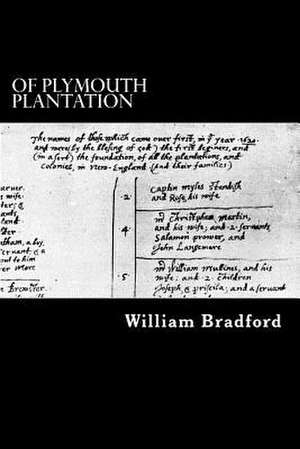 OF PLYMOUTH
PLANTATION
The names of those which came over first, in yᵉ year .1620.
and were by the blesing of god the first beginers, and
(in a sort) the foundation, of all the plantations, and
Colonies, in New-England. (And their families)
.2
Captin Myles Standish
and Rose, his wife
.4
mr Christopher Martin,
and his wife; and .2. servants,
Salamon prower, and
John Langemore
.5
mr William Mullines, and his
wife; and .2. children
Joseph, & priscila; and a servant
arner.
s wife.
land.
dham, a boy,
servant; & a
out to him
er More
e Brewster.
William Bradford